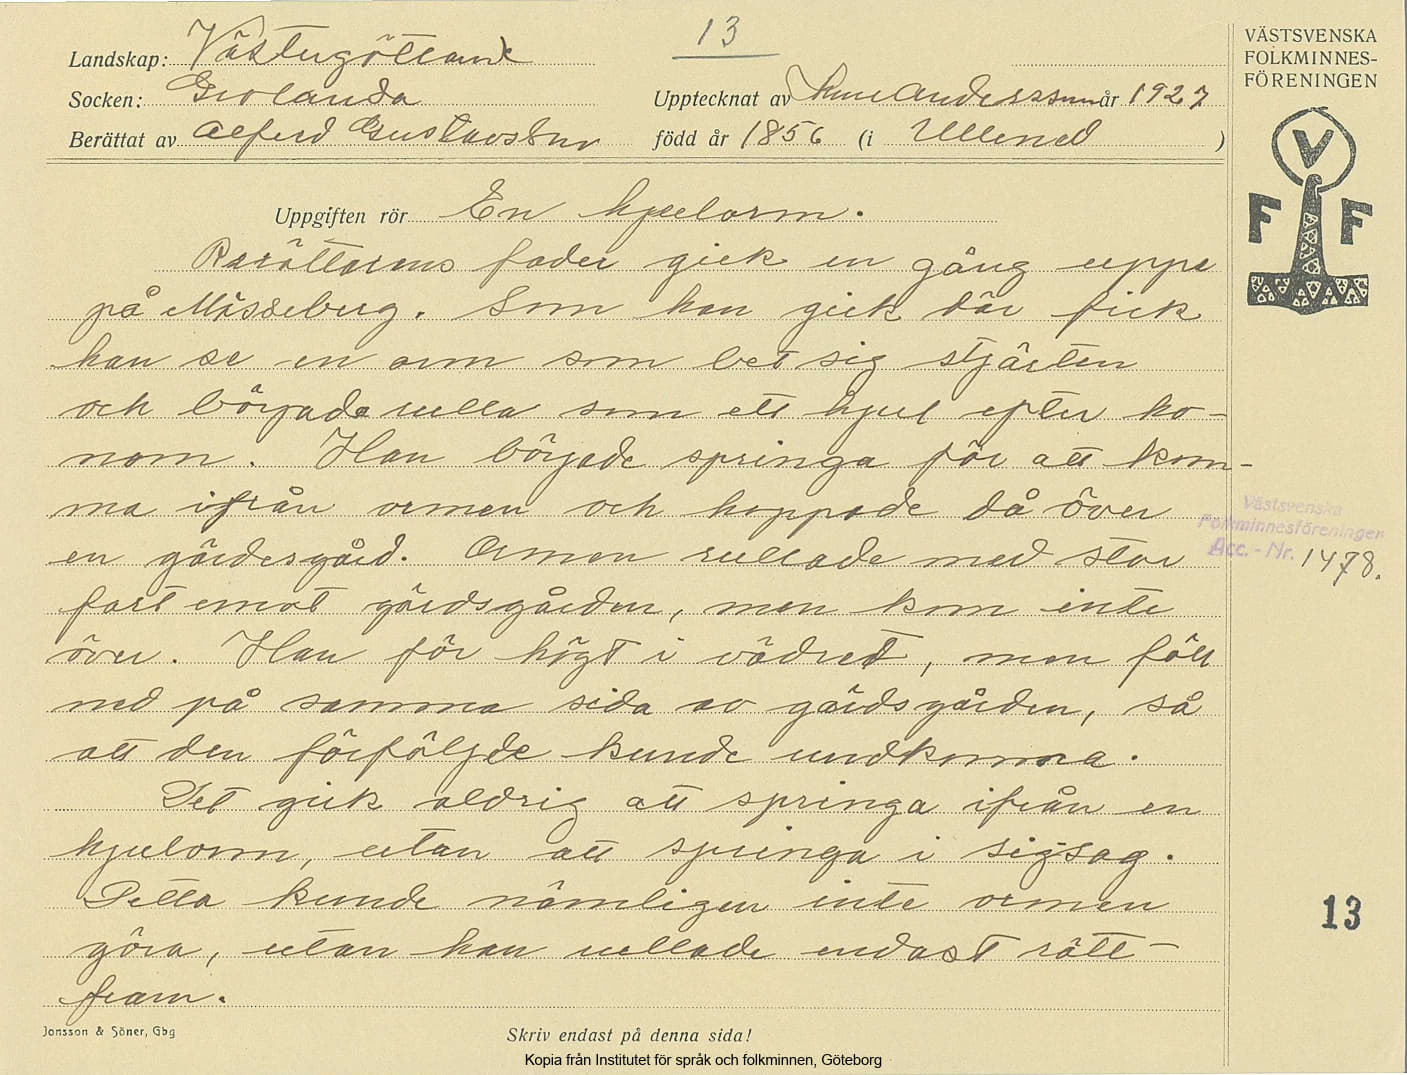 13
Landskap: Västergötland
Socken: Grolanda
Upptecknat av Rune Andersson år 1927
Berättat av Alferd Gustavsson född år 1856 (i Ullened)
VÄSTSVENSKA
FOLKMINNES-
FÖRENINGEN
V
F F
Uppgiften rör En hjulorm.
Berättarens fader gick en gång uppe
på Mösseberg. Som han gick där fick
han se en orm som bet sig stjärten
och började rulla som ett hjul efter ho-
nom. Han började springa för att kom-
ma ifrån ormen och hoppade då över
en gärdesgård. Ormen rullade med stor
fart emot gärdsgården, men kom inte
över. Han för högt i vädret, men föll
ned på samma sida av gärdsgården, så
att den förföljde kunde undkomma.
Det gick aldrig att springa ifrån en
hjulorm, utan att springa i sigsag.
Detta kunde nämligen inte ormen
göra, utan han rullade endast rätt-
fram.
Västsvenska
Folkminnesföreningen
Acc. - Nr. 1478.
13
Jonsson & Söner, Gbg
Skriv endast på denna sida!
Kopia från Institutet för språk och folkminnen, Göteborg